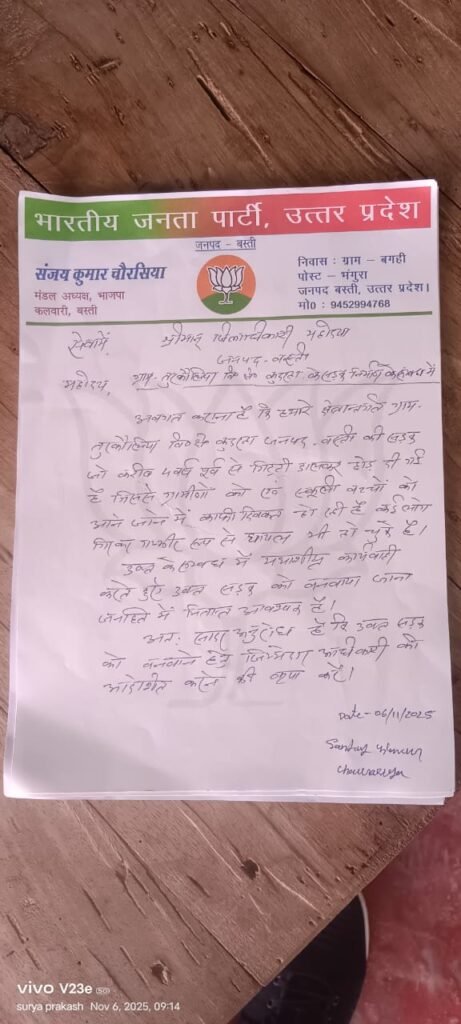 भारतीय जनता पार्टी, उत्तर प्रदेश
जनपद - बस्ती
संजय कुमार चौरसिया
मंडल अध्यक्ष, भाजपा
कलवारी, बस्ती
निवास : ग्राम - बगही
पोस्ट - भंगुरा
जनपद बस्ती, उत्तर प्रदेश।
मो0 : 9452994768
सेवामें,
श्रीमान् जिलाधिकारी महोदय
जनपद-बस्ती
महोदय, ग्राम-तुरकौलिया वि0ख0 कुदरहा के सड़क निर्माण के सम्बन्ध में
अवगत कराना है कि हमारे क्षेत्रान्तर्गत ग्राम-
तुरकौलिया वि0ख0 कुदरहा जनपद-बस्ती की सड़क
जो करीब वर्ष पूर्व से गिट्टी डालकर छोड़ दी गई
है जिससे ग्रामीणों को एवं स्कूली बच्चों को
आने जाने में काफी दिक्कत हो रही है कई लोग
गिरकर गम्भीर रूप से घायल भी हो चुके हैं।
उक्त के सम्बन्ध में यथाशीघ्र कार्यवाही
करते हुए उक्त सड़क को बनवाया जाना
जनहित में नितान्त आवश्यक है।
अतः सादर अनुरोध है कि उक्त सड़क
को बनवाने हेतु जिम्मेदार अधिकारी को
आदेशित करने की कृपा करें।
Date-06/11/2025
Sanjay Kumar
Chaurasiya
vivo V23e 5G
surya prakash Nov 6, 2025, 09:14